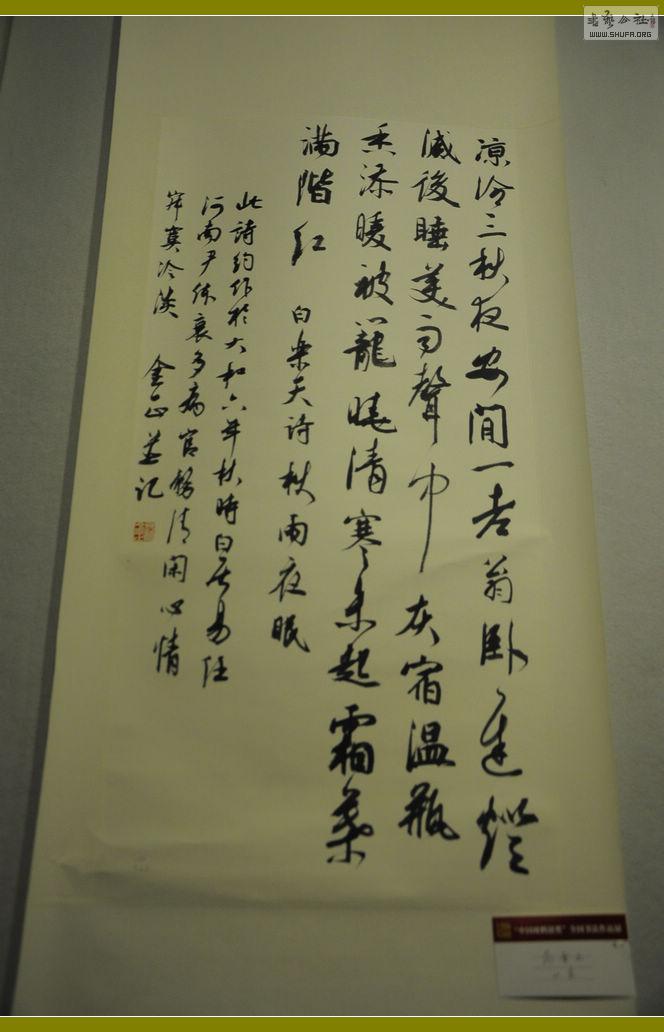 涼冷三秋夜安間一老翁卧遲燈
滅後睡美雨聲中灰宿温瓶
香添暖被籠曉清寒未起霜葉
滿階紅 白樂天詩秋雨夜眠
此詩約作於大和六年秋時白居易任
河南尹体衰多病官務清闲心情
寂寞冷淡 金正並记
书艺公社
WWW.SHUFA.ORG